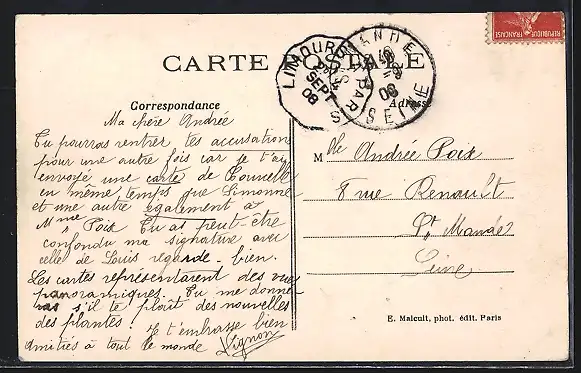 CARTE POSTALE
RÉPUBLIQUE FRANÇAISE
LIMOURS A PARIS
SEPT
08
MANDÉ
SEINE
Correspondance
Adresse
Ma chère Andrée
Tu pourras rentrer tes accusation
pour une autre fois car je t'ai
envoyé une carte de Courcelle
en même temps que Simonne
et une autre également à
Mme Poix Tu as peut-être
confondu ma signature avec
celle de Louis regarde-bien.
Les cartes représentaient des vue
panoramiques. Tu me donne-
ras s'il te plaît des nouvelles
des plantes! Je t'embrasse bien
Amitiés à tout le monde
Vignon
Mlle Andrée Poix
8 rue Renault
St Mandé
Seine
E. Malcuit, phot. édit. Paris